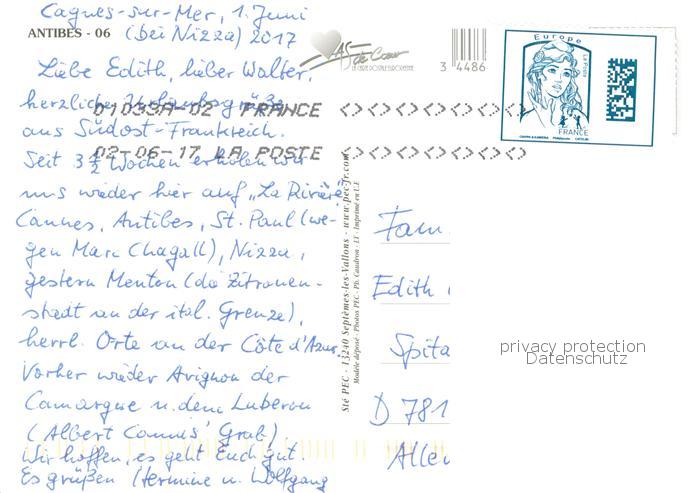 Cagnes-sur-Mer, 1. Juni
ANTIBES - 06 (bei Nizza) 2017
Liebe Edith, lieber Walter,
herzliche Urlaubsgrüße
aus Südost-Frankreich.
Seit 3 1/2 Wochen erholen wir
uns wieder hier auf "La Rivière"
Cannes, Antibes, St. Paul (we-
gen Marc Chagall), Nizza,
gestern Menton (die Zitronen-
stadt an der ital. Grenze),
herrl. Orte an der Côte d'Azur.
Vorher wieder Avignon der
Camargue u. dem Luberon
(Albert Camus' Grab)
Wir hoffen, es geht Euch gut.
Es grüßen Hermine u. Wolfgang
01033A-02 FRANCE
02-06-17 LA POSTE
As de Cœur
LA CARTE POSTALE EUROPEENNE
3 4486
Europe
La Poste
FRANCE
Sté PEC - 13240 Septèmes-les-Vallons - www.pec-fr.com
Modèle déposé - Photos PEC - Ph: Caudron - LT - Imprimé en U.E
Fam.
Edith
Spita
D 781
Aller
privacy protection
Datenschutz